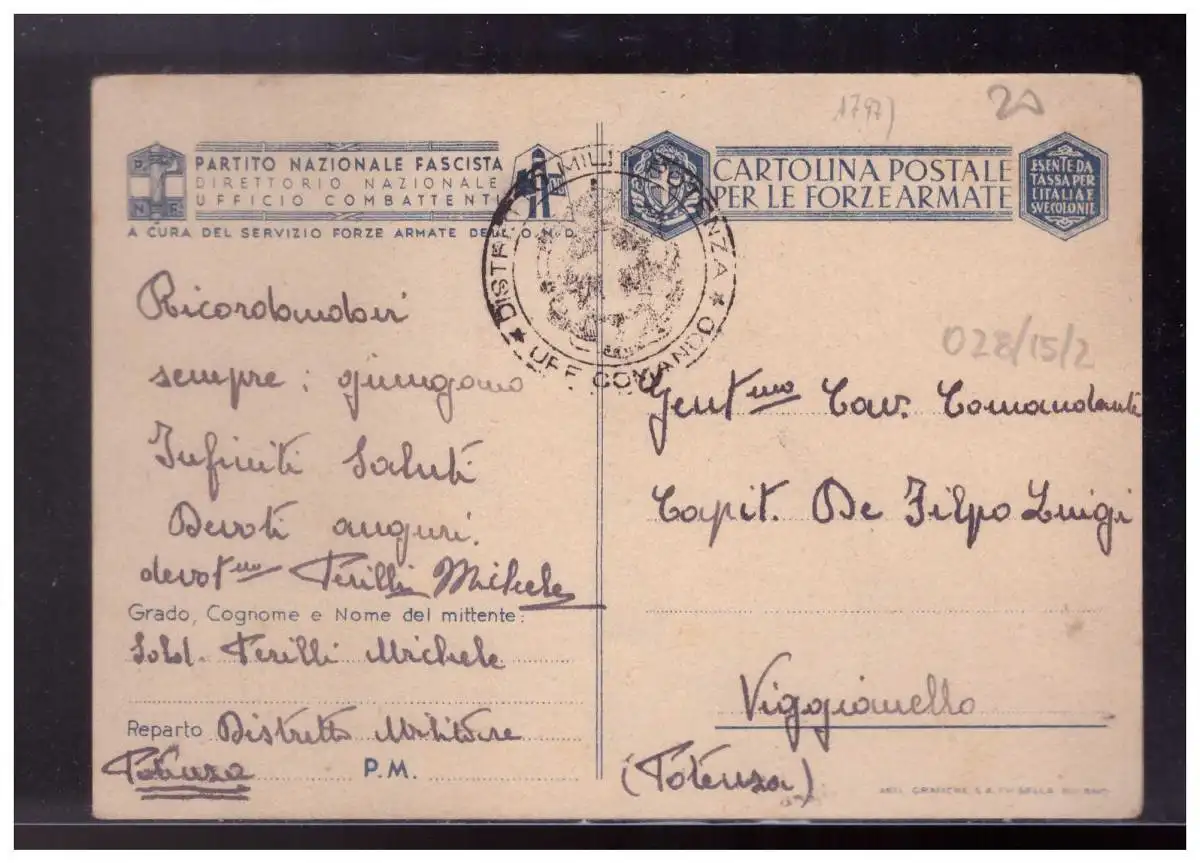 1797)
20
P.
N. F.
PARTITO NAZIONALE FASCISTA
DIRETTORIO NAZIONALE
UFFICIO COMBATTENTI
A CURA DEL SERVIZIO FORZE ARMATE DELL'O.N.D.
CARTOLINA POSTALE
PER LE FORZE ARMATE
ESENTE DA
TASSA PER
L'ITALIA E
SVE COLONIE
★ DISTRETTO MILIT. POTENZA ★
UFF COMANDO
Ricordandovi
sempre: giungano
Infiniti Saluti
Devoti auguri.
devotmo Perilli Michele
Grado, Cognome e Nome del mittente:
Sold. Perilli Michele
Reparto Distretto Militare
Potenza P. M.
028/15/2
Gentmo Cav. Comandante
Capit. De Filpo Luigi
Viggianello
(Potenza)